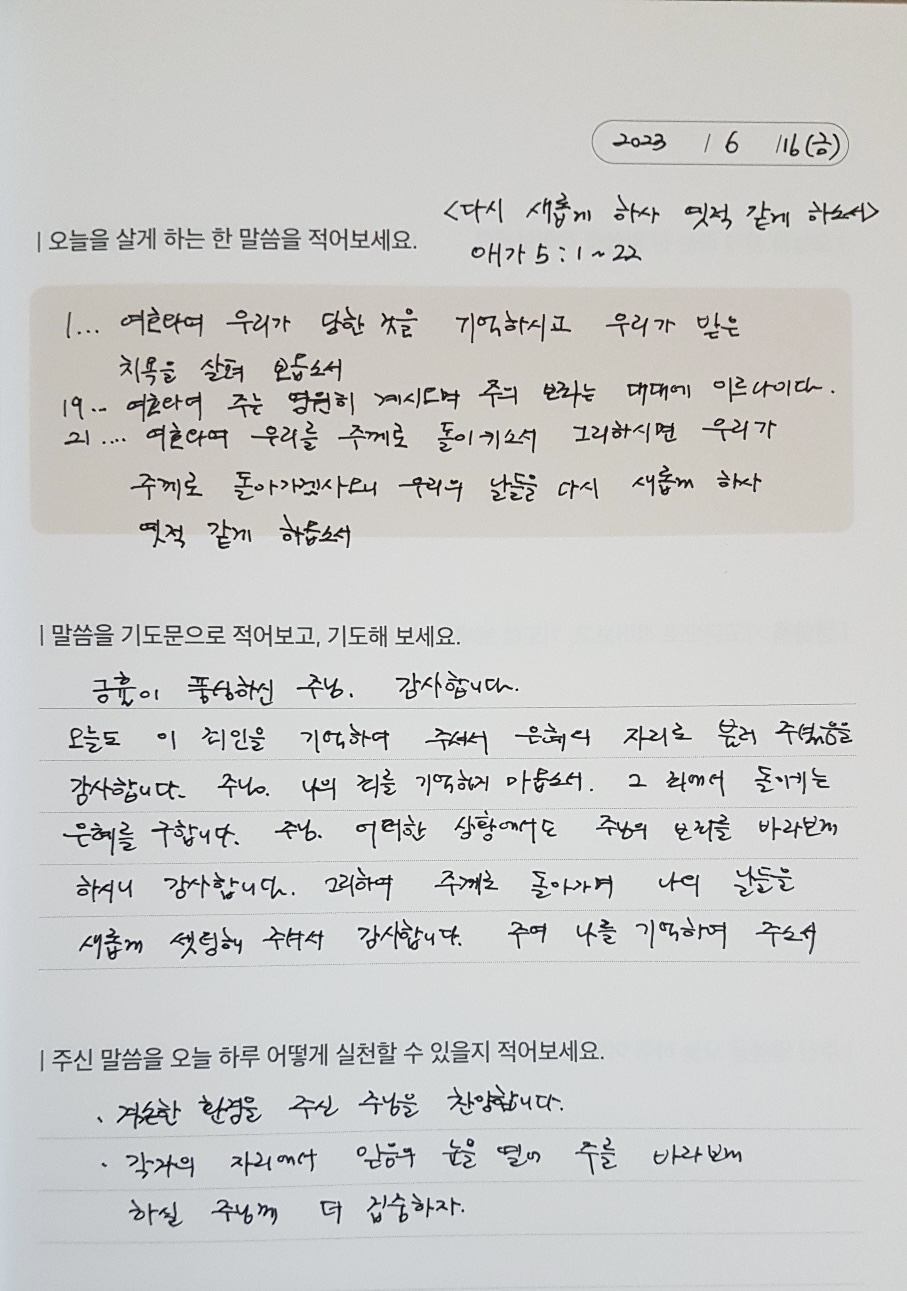 2023 / 6 /16(금)
<다시 새롭게 하사 옛적 같게 하소서>
| 오늘을 살게 하는 한 말씀을 적어보세요.
애가 5:1~22
1... 여호와여 우리가 당한 것을 기억하시고 우리가 받은
치욕을 살펴 보옵소서
19... 여호와여 주는 영원히 계시오며 주의 보좌는 대대에 이르나이다.
21.... 여호와여 우리를 주께로 돌이키소서 그리하시면 우리가
주께로 돌아가겠사오니 우리의 날들을 다시 새롭게 하사
옛적 같게 하옵소서
| 말씀을 기도문으로 적어보고, 기도해 보세요.
긍휼이 풍성하신 주님. 감사합니다.
오늘도 이 죄인을 기억하여 주셔서 은혜의 자리로 불러 주셨음을
감사합니다. 주님. 나의 죄를 기억하지 마옵소서. 그 죄에서 돌이키는
은혜를 구합니다. 주님. 어떠한 상황에서도 주님의 보좌를 바라보게
하시니 감사합니다. 그리하여 주께로 돌아가며 나의 날들을
새롭게 셋팅해 주셔서 감사합니다. 주여 나를 기억하여 주소서
| 주신 말씀을 오늘 하루 어떻게 실천할 수 있을지 적어보세요.
. 겸손한 환경을 주신 주님을 찬양합니다.
. 각자의 자리에서 믿음의 눈을 열어 주를 바라보게
하실 주님께 더 집중하자.